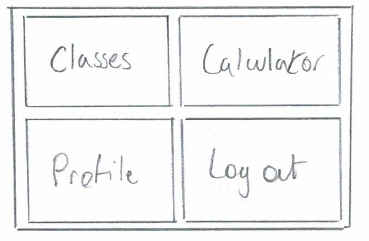 Classes
Calculator
Profile
Log out